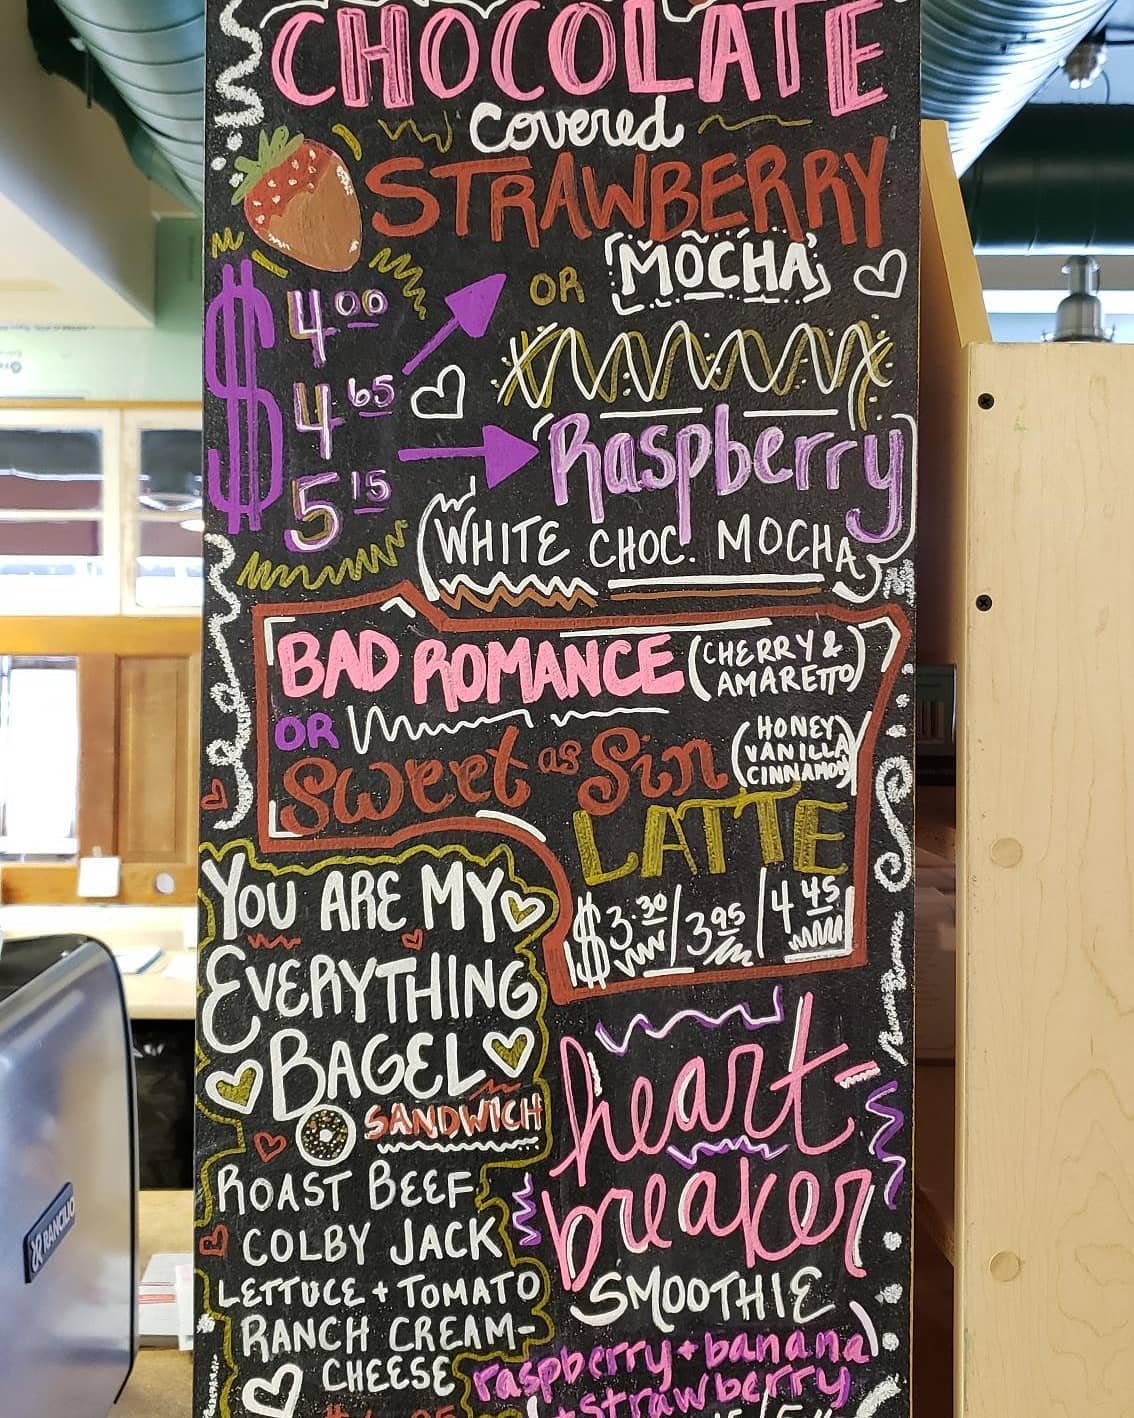 CHOCOLATE
Covered
STRAWBERRY
OR MOCHA
$ 4.00
4.65
5.15
Raspberry
(WHITE CHOC. MOCHA)
BAD ROMANCE (CHERRY & AMARETTO)
OR
Sweet as Sin (HONEY VANILLA CINNAMON)
LATTE
$3.30/3.95/4.45
YOU ARE MY
EVERYTHING
BAGEL
SANDWICH
ROAST BEEF
COLBY JACK
LETTUCE + TOMATO
RANCH CREAM-
CHEESE
heart-
breaker
SMOOTHIE
raspberry + banana
+ strawberry
RANCILIO